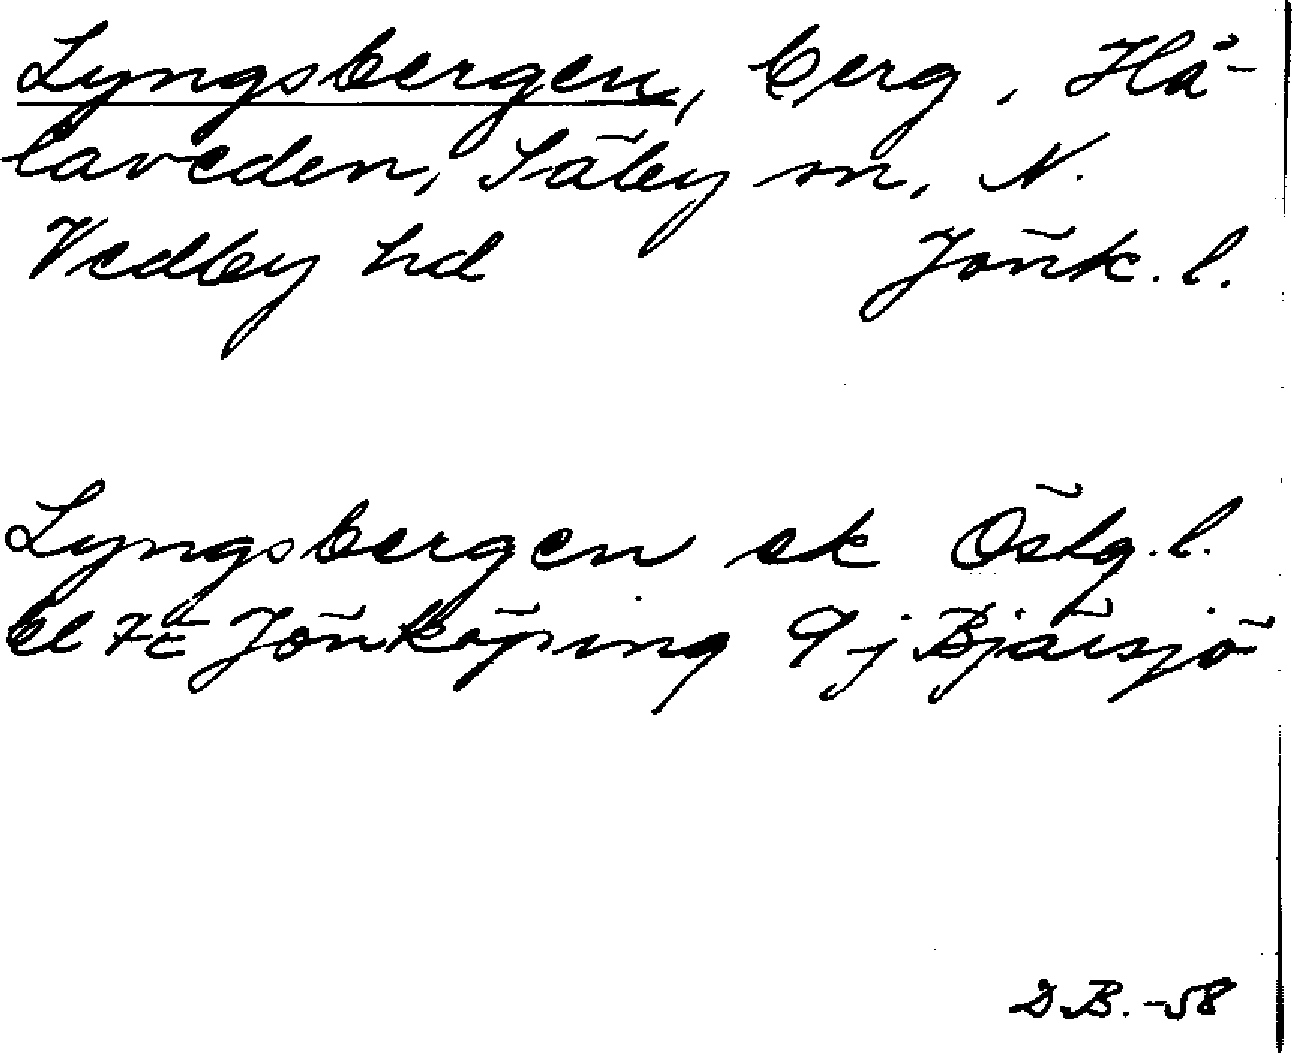 Lyngsbergen, berg, Hå-
laveden, Säby sn, N.
Vedby hd Jönk. l.
Lyngsbergen ek Östg. l.
bl 7E Jönköping 9 j Bjärsjö
D.B. -58